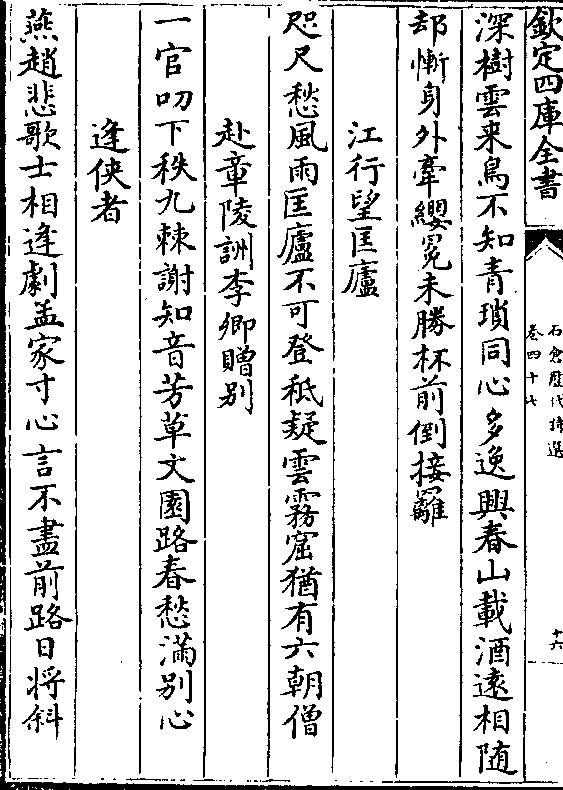 欽定四庫全書
石倉歷代詩選
卷四十七
十六
深樹雲来鳥不知青瑣同心多逸興春山載酒遠相随
却慚身外牽纓冕未勝杯前倒接䍦
江行望匡廬
咫尺愁風雨匡廬不可登秪疑雲霧窟猶有六朝僧
赴章陵詶李卿贈别
一官叨下秩九棘謝知音芳草文園路春愁滿别心
逢俠者
燕趙悲歌士相逢劇孟家寸心言不盡前路日将斜